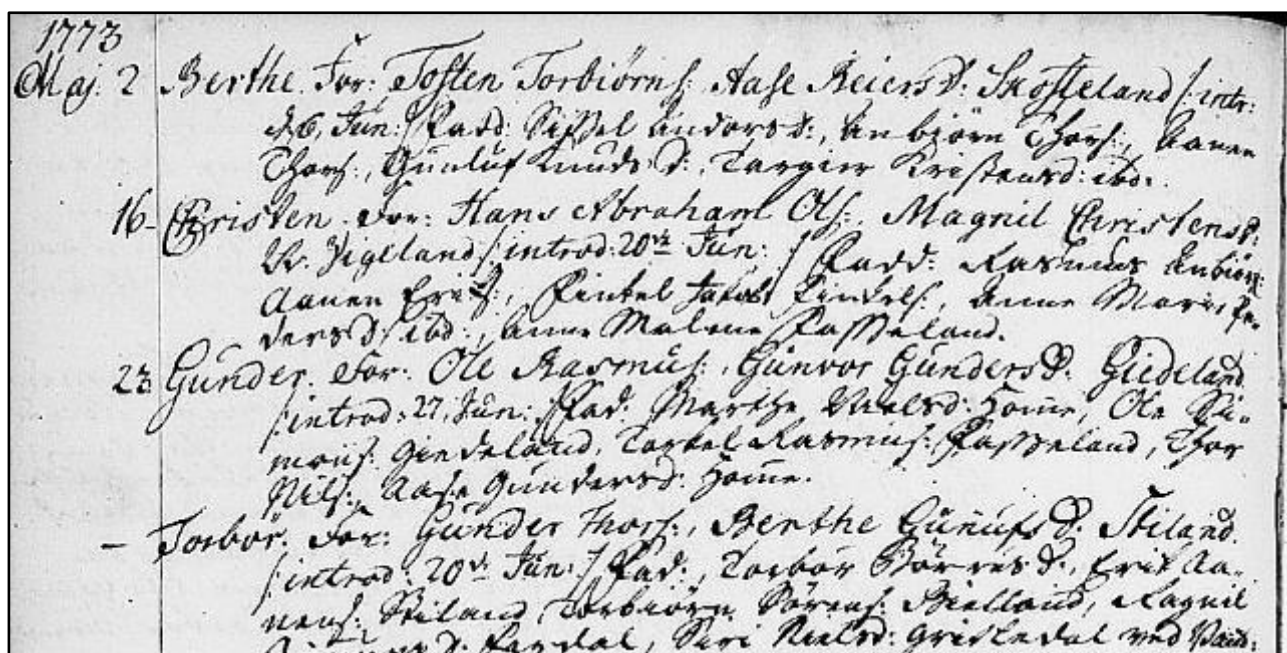 1773
Maj. 2 Berthe. For: Tosten Torbiörns: Aase Reiersd: Skofteland /: intr:
d. 6, Jun: / Fadd: Sissel Andersd:, Anbiörn Thors:, Aanen
Thors:, Gunluf Knudsd:, Targier Kristensd: ibd.
16- Christen. For: Hans Abraham Ols:, Magnil Christensd:
V. Vigeland /: introd: 20de Jun: / Fadd: Rasmus Anbiörns:
Aanen Erics:, Finkel Jakobs: Finkels:, Anne Marie Pe-
dersd: ibd:, Anne Malene Fasseland.
23 Gunder. For: Ole Rasmus:, Gunvor Gundersd: Giedeland
/: introd: 27, Jun: / Fad: Marthe Nielsd: Home, Ole Si-
mons: Giedeland, Torkel Rasmus: Fasseland, Thor
Nils:, Aase Gundersd: Home.
- Torbor. For: Gunder Thors:, Berthe Gunufsd: Stiland
/: introd: 20de Jun: / Fad:, Torbor Börresd:, Erik Aa-
nens: Stiland, Torbiörn Sörens: Bielland, Ragnil
Siri Nielsd: Gristedal ved Vand: